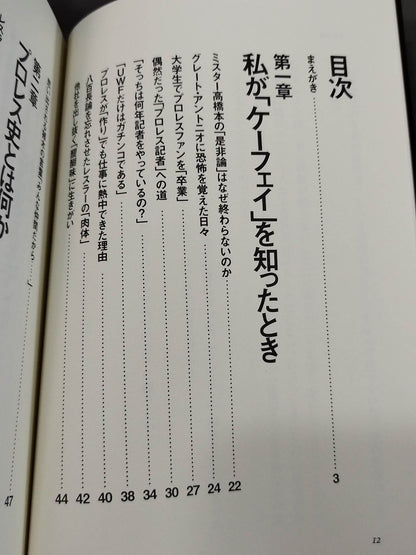 目次
まえがき 3
第一章
私が「ケーフェイ」を知ったとき
ミスター高橋本の「是非論」はなぜ終わらないのか 22
グレート・アントニオに恐怖を覚えた日々 24
大学生でプロレスファンを「卒業」 27
偶然だった「プロレス記者」への道 30
「そっちは何年記者をやっているの?」 34
「UWFだけはガチンコである」 38
プロレスが「作り」でも仕事に熱中できた理由 40
八百長論を忘れさせたレスラーの「肉体」 42
他社を出し抜く「醍醐味」に生きがい 44
第二章
プロレス史とは何か
47
12